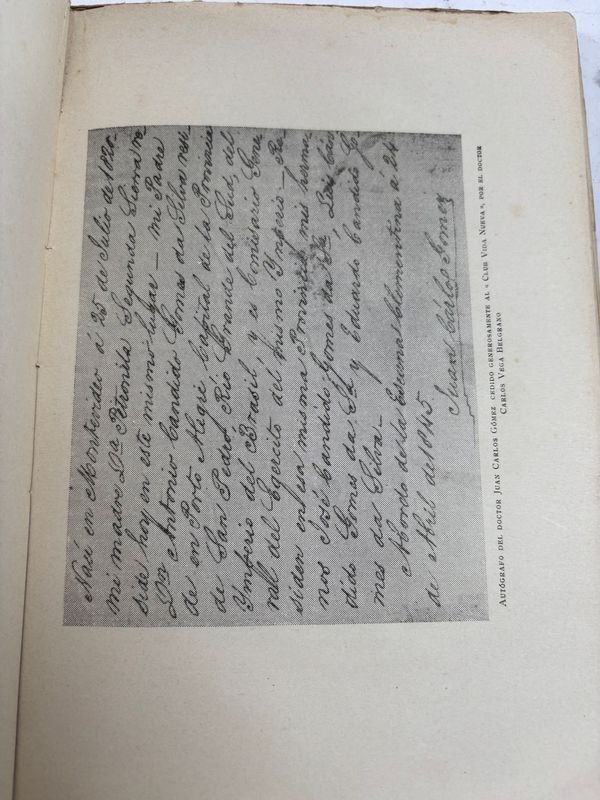 Nací en Montevideo á 25 de Julio de 1820.
mi madre Dª Petronila Segunda Sierra re
side hoy en este mismo lugar — mi Padre
Dn Antonio Candido Gomes da Silva resi-
de en Porto Alegre Capital de la Provincia
de San Pedro, Rio Grande del Sud, del
Imperio del Brasil, y es Comisario Gene
ral del Egercito del mismo Imperio — Re-
siden en esa misma Provincia mis herma-
nos José Candido Gomes da Sª, Luis Can
dido Gomes da Sª y Eduardo Candido Go-
mes da Silva —
Abordo de la Clementina á 24
de Abril de 1845
Juan Cárlos Gomez
AUTÓGRAFO DEL DOCTOR JUAN CARLOS GÓMEZ CEDIDO GENEROSAMENTE AL « CLUB VIDA NUEVA », POR EL DOCTOR
CARLOS VEGA BELGRANO